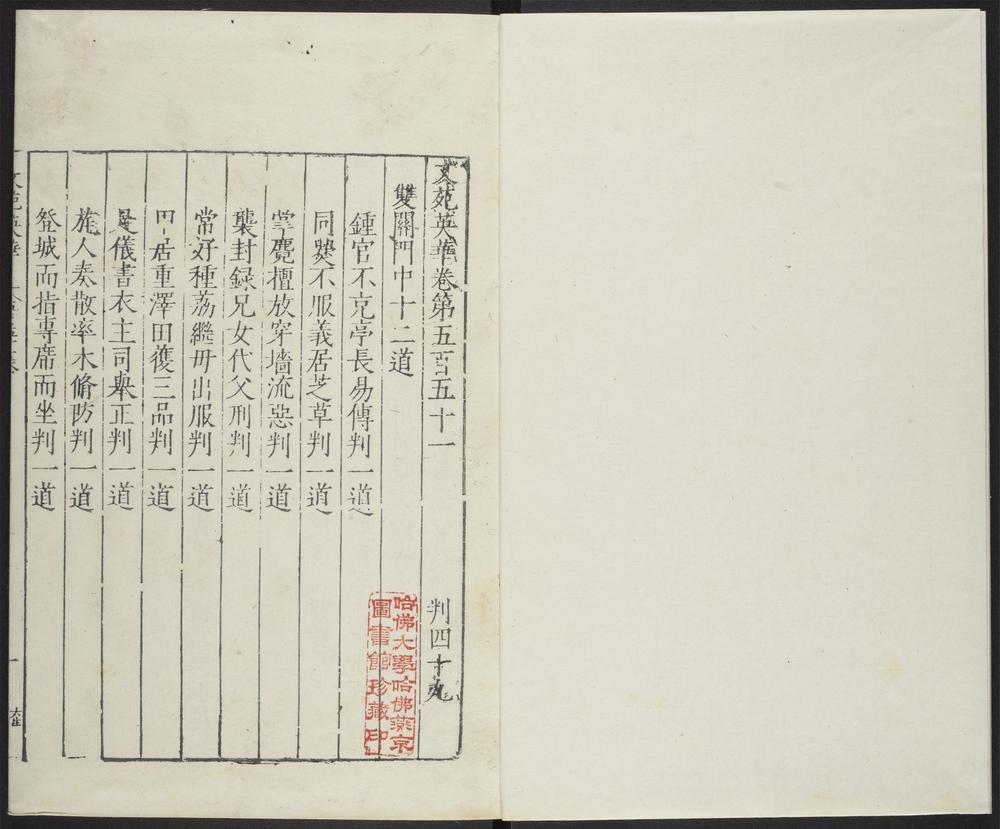 文苑英華卷第五百五十一
判四十九
雙關門中十二道
鍾官不充亭長易傳判一道
同爨不服義居芝草判一道
掌麑擅放穿墻流惡判一道
襲封録兄女代父刑判一道
常好種荔繼毋出服判一道
居重澤田復三品判一道
是儀書衣主司舉正判一道
旄人奏散率木脩防判一道
登城而指專席而坐判一道
文苑英華
一
哈佛大學哈佛燕京
圖書館珍藏印